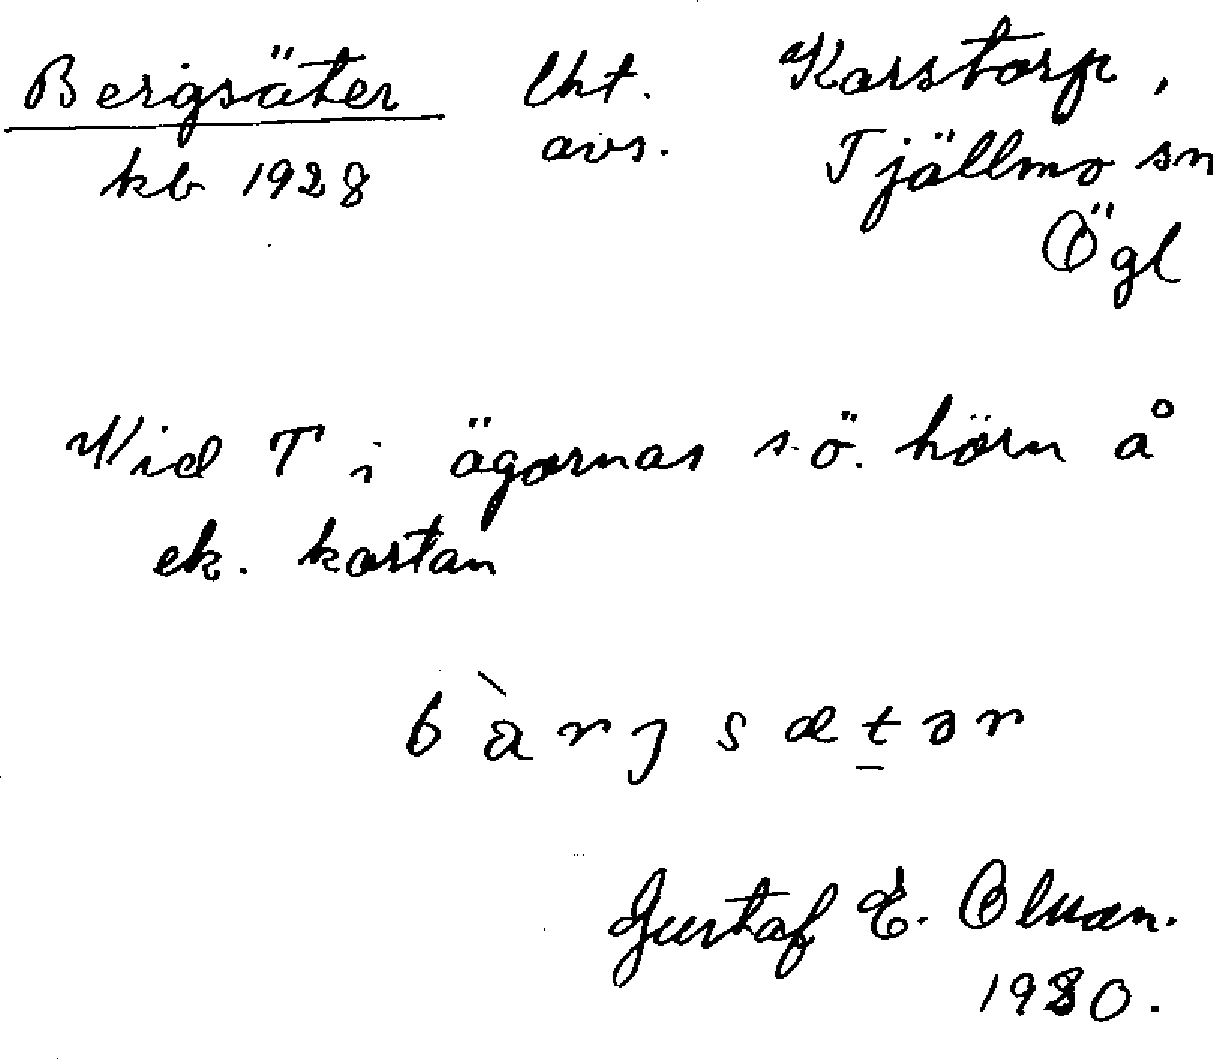 Bergsäter lht. Karstorp,
kb 1928 avs. Tjällmo sn
Ögl
Vid T i ägornas s.ö. hörn å
ek. kartan
b à r j s æ t ə r
Gustaf E. Olsson.
1930.